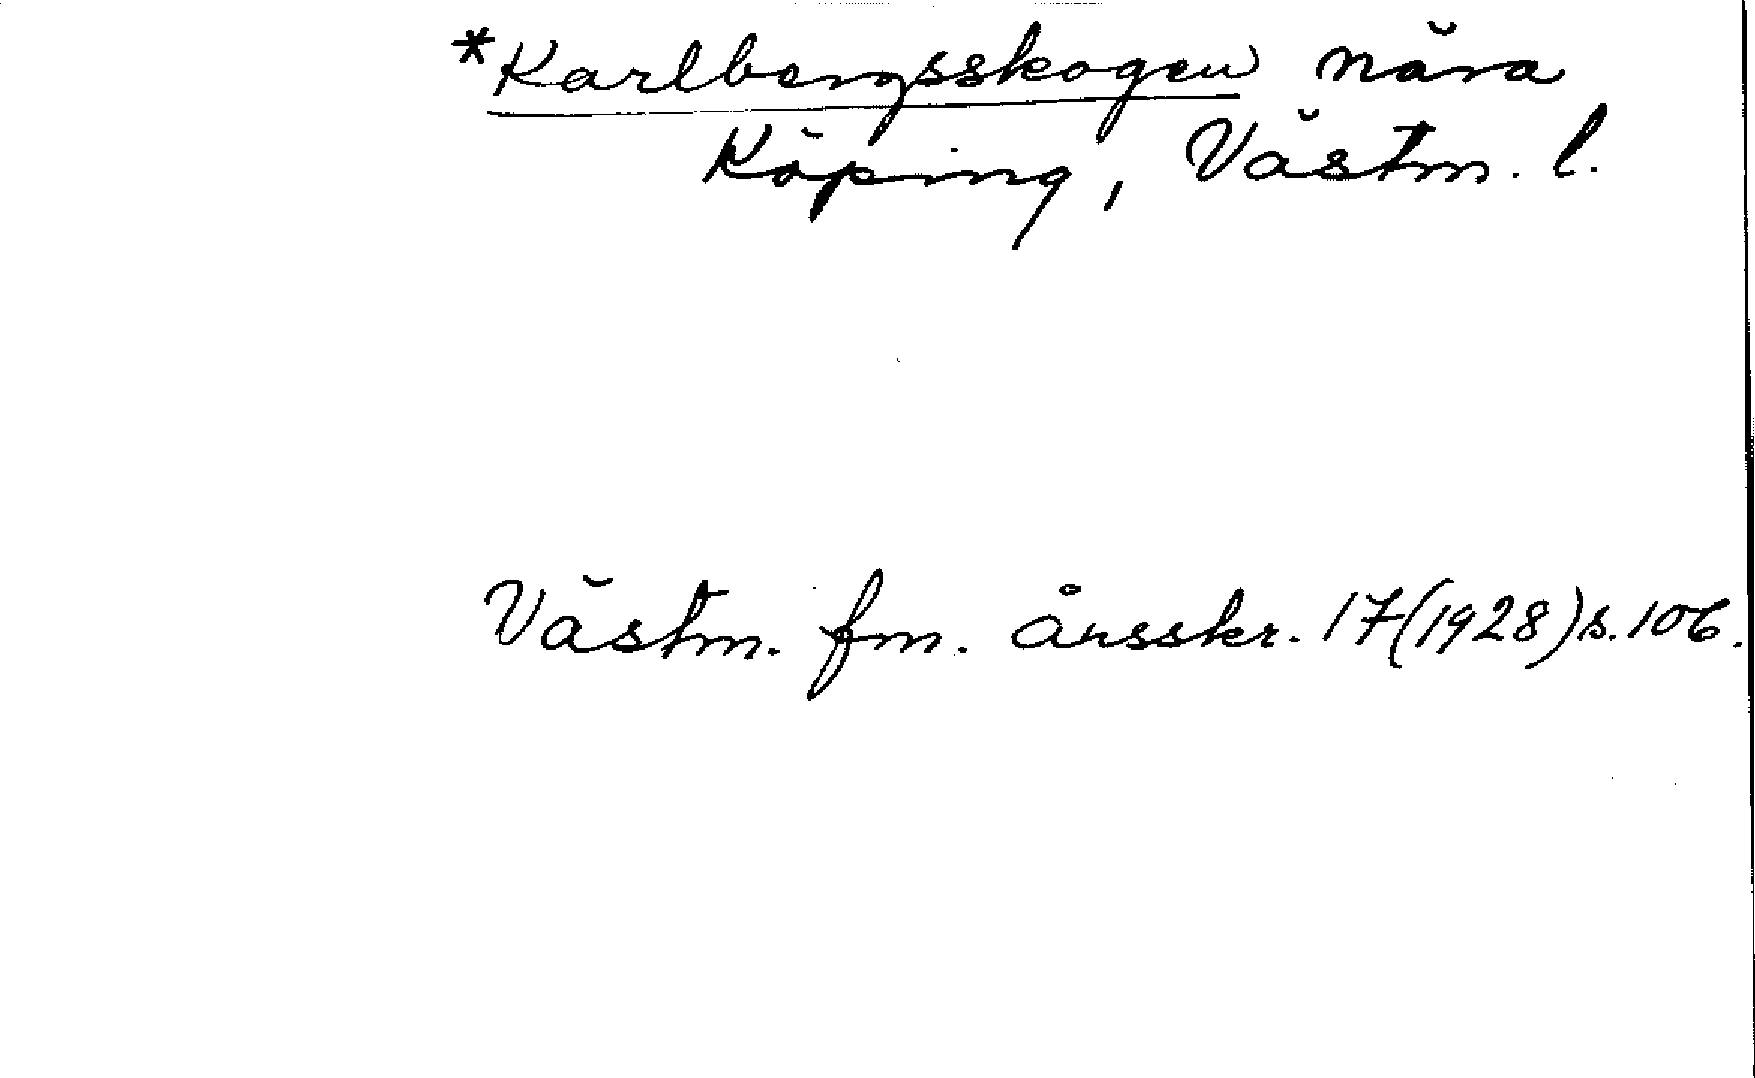 *Karlbergsskogen nära
Köping, Västm. l.
Västm. fm. årsskr. 17(1928)s.106.